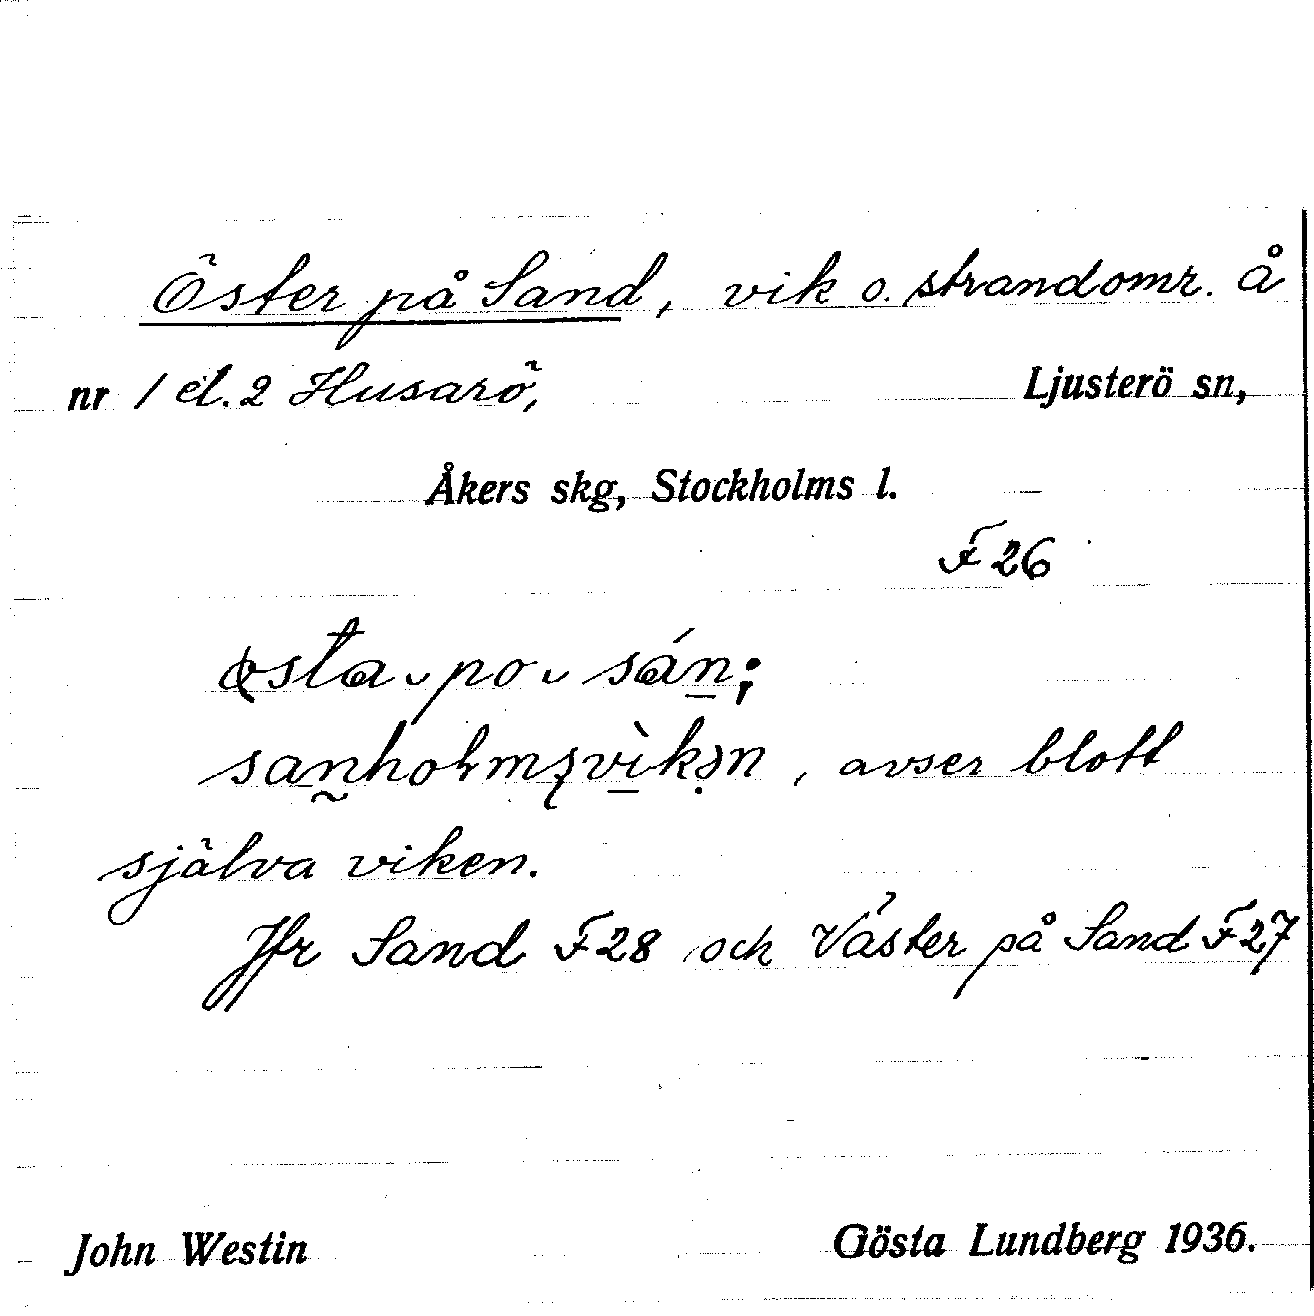 Öster på Sand, vik o. strandomr. Å
nr 1 el. 2 Husarö, Ljusterö sn,
Åkers skg, Stockholms l.
F 26
østa ‿ po ‿ sán̲;
avser blott
själva viken.
Jfr Sand F 28 och Väster på Sand F 27
John Westin Gösta Lundberg 1936.